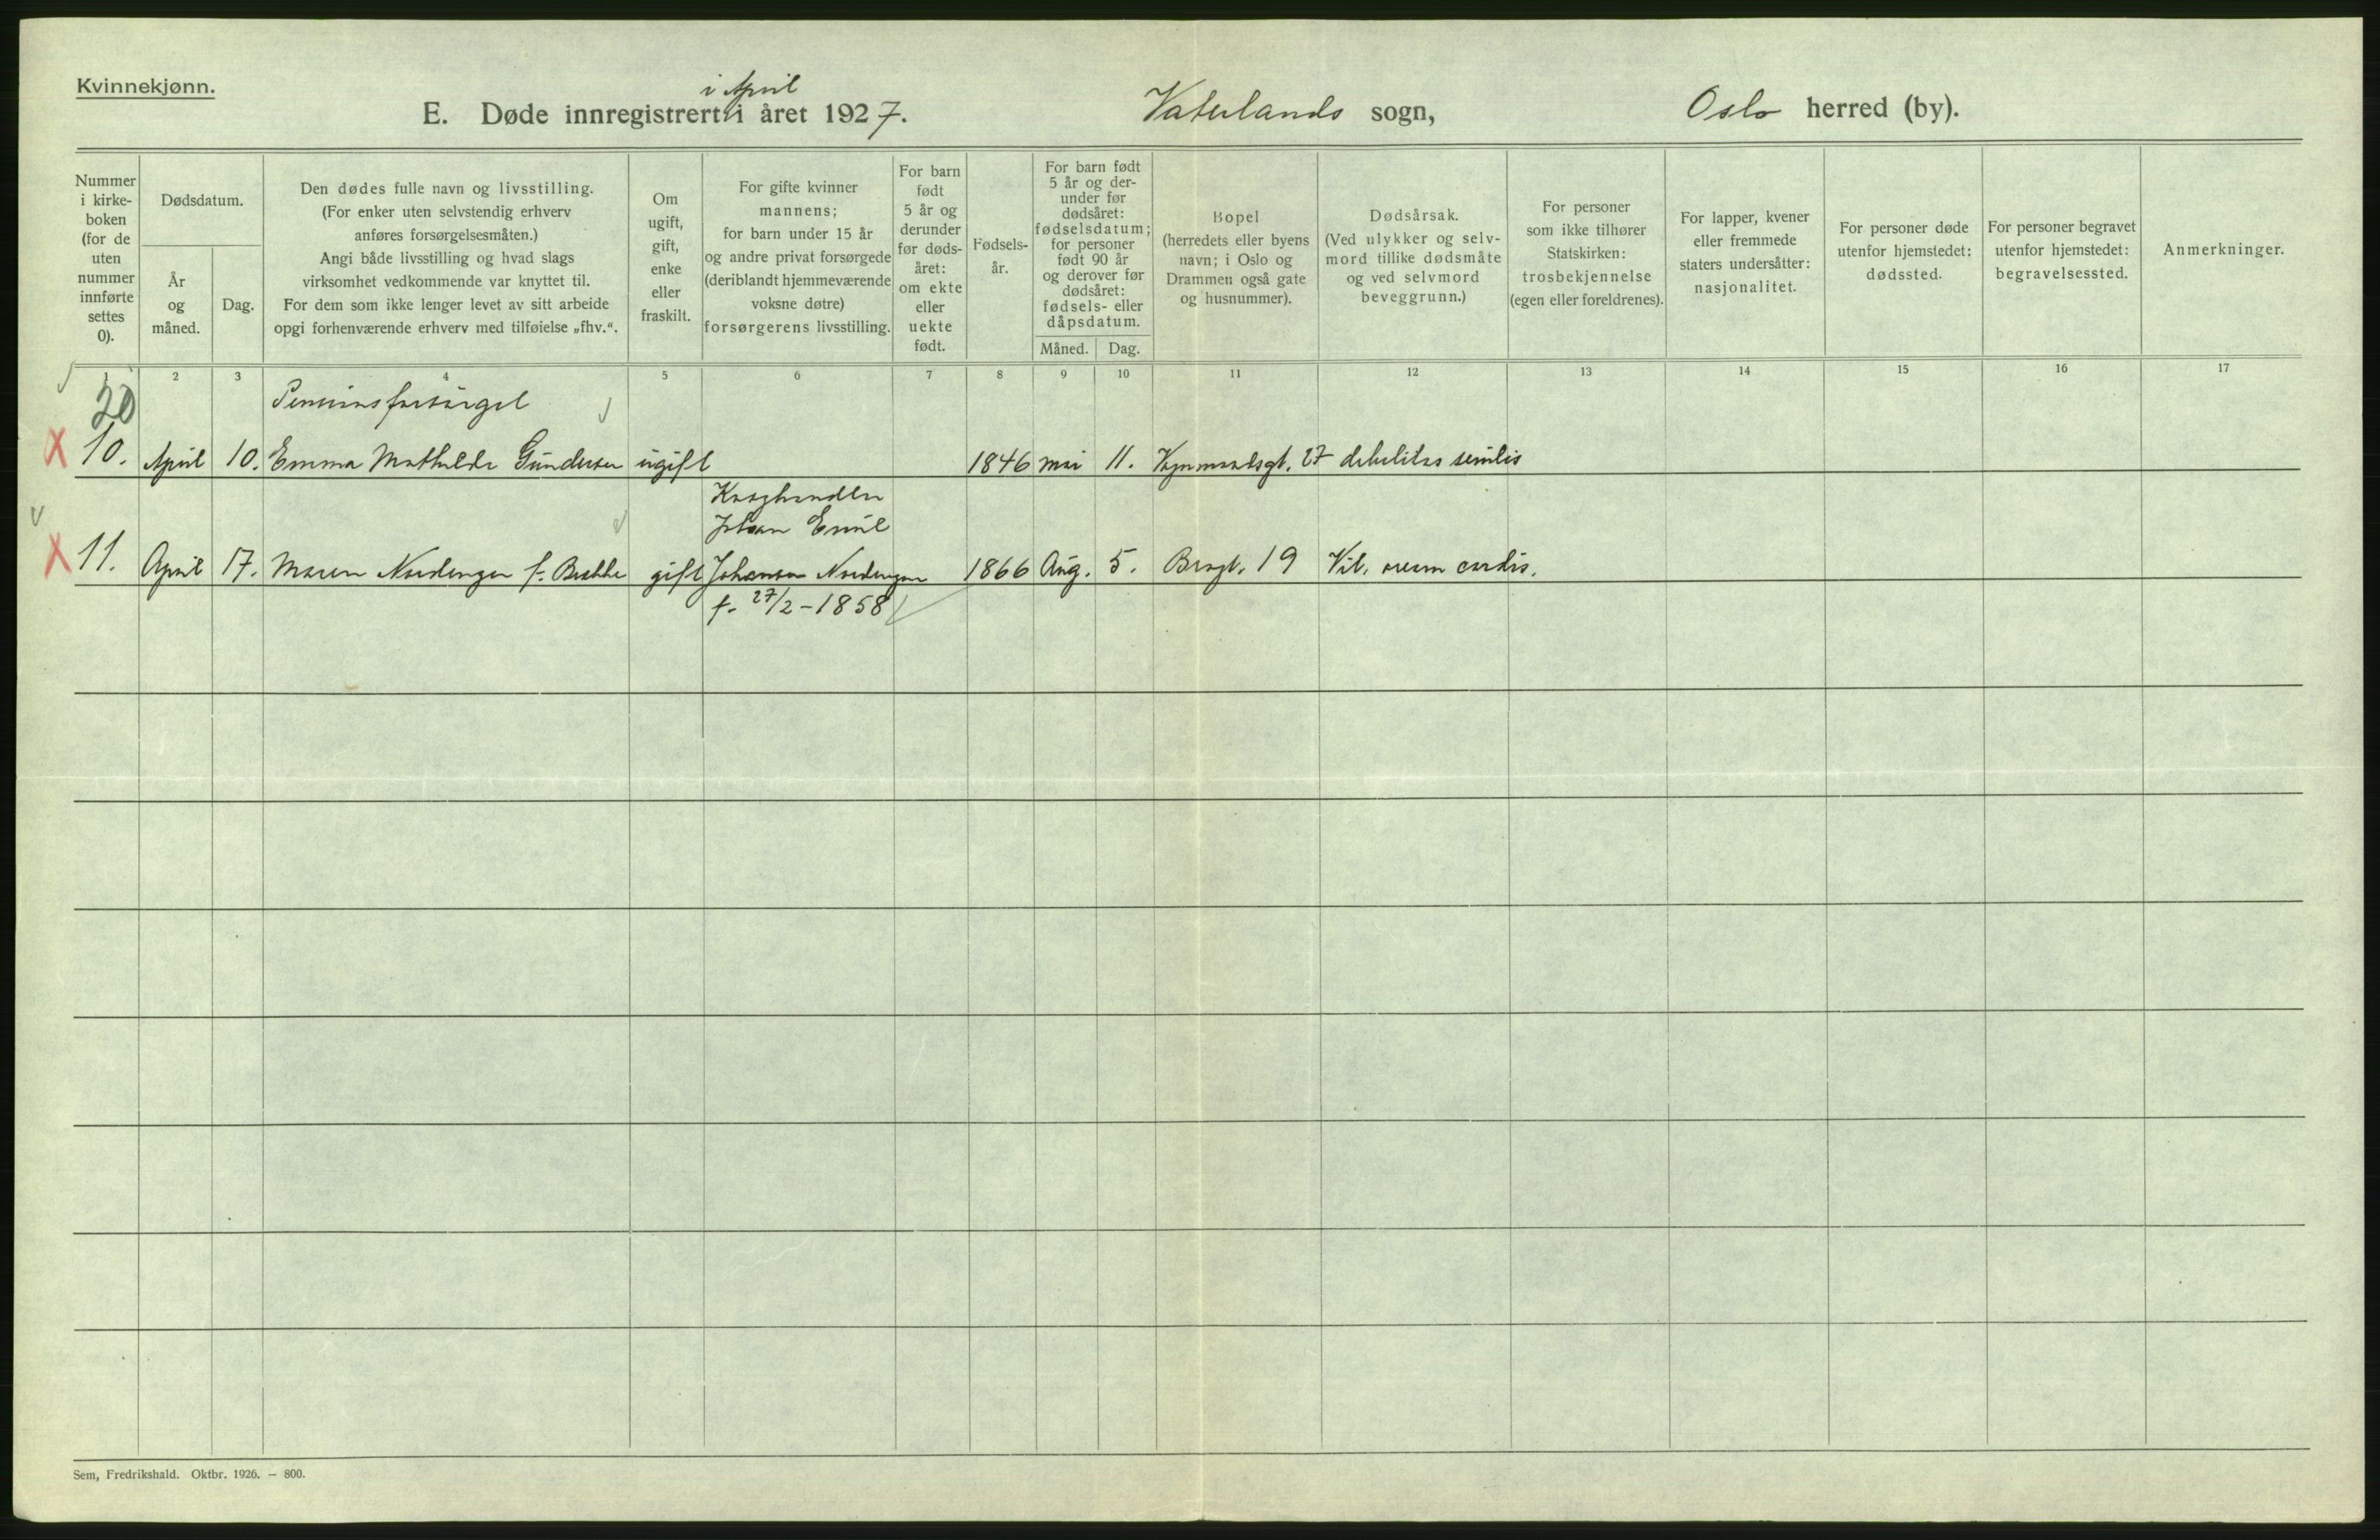 Kvinnekjønn.
i April
E. Døde innregistrert i året 1927.
Vaterlands sogn,
Oslo herred (by).
Nummer
i kirke-
boken
(for de
uten
nummer
innførte
settes
0).
Dødsdatum.
År
og
måned.
Dag.
Den dødes fulle navn og livsstilling.
(For enker uten selvstendig erhverv
anføres forsørgelsesmåten.)
Angi både livsstilling og hvad slags
virksomhet vedkommende var knyttet til.
For dem som ikke lenger levet av sitt arbeide
opgi forhenværende erhverv med tilføielse „fhv.“.
Om
ugift,
gift,
enke
eller
fraskilt.
For gifte kvinner
mannens;
for barn under 15 år
og andre privat forsørgede
(deriblandt hjemmeværende
voksne døtre)
forsørgerens livsstilling.
For barn
født
5 år og
derunder
før døds-
året:
om ekte
eller
uekte
født.
Fødsels-
år.
For barn født
5 år og der-
under før
dødsåret:
fødselsdatum;
for personer
født 90 år
og derover før
dødsåret:
fødsels- eller
dåpsdatum.
Måned. Dag.
Bopel
(herredets eller byens
navn; i Oslo og
Drammen også gate
og husnummer).
Dødsårsak.
(Ved ulykker og selv-
mord tillike dødsmåte
og ved selvmord
beveggrunn.)
For personer
som ikke tilhører
Statskirken:
trosbekjennelse
(egen eller foreldrenes).
For lapper, kvener
eller fremmede
staters undersåtter:
nasjonalitet.
For personer døde
utenfor hjemstedet:
dødssted.
For personer begravet
utenfor hjemstedet:
begravelsessted.
Anmerkninger.
1 2 3 4 5 6 7 8 9 10 11 12 13 14 15 16 17
20
Pensionsforsørget
10. April 10. Emma Mathilde Gundersen ugift 1846 mai 11. 27 debilitas senilis
Johan Emil
11. April 17. Maren Nordengen f. gift Johansen Nordengen 1866 Aug. 5. 19 Vit. cordis.
f. 27/2-1858
Sem, Fredrikshald. Oktbr. 1926. — 800.